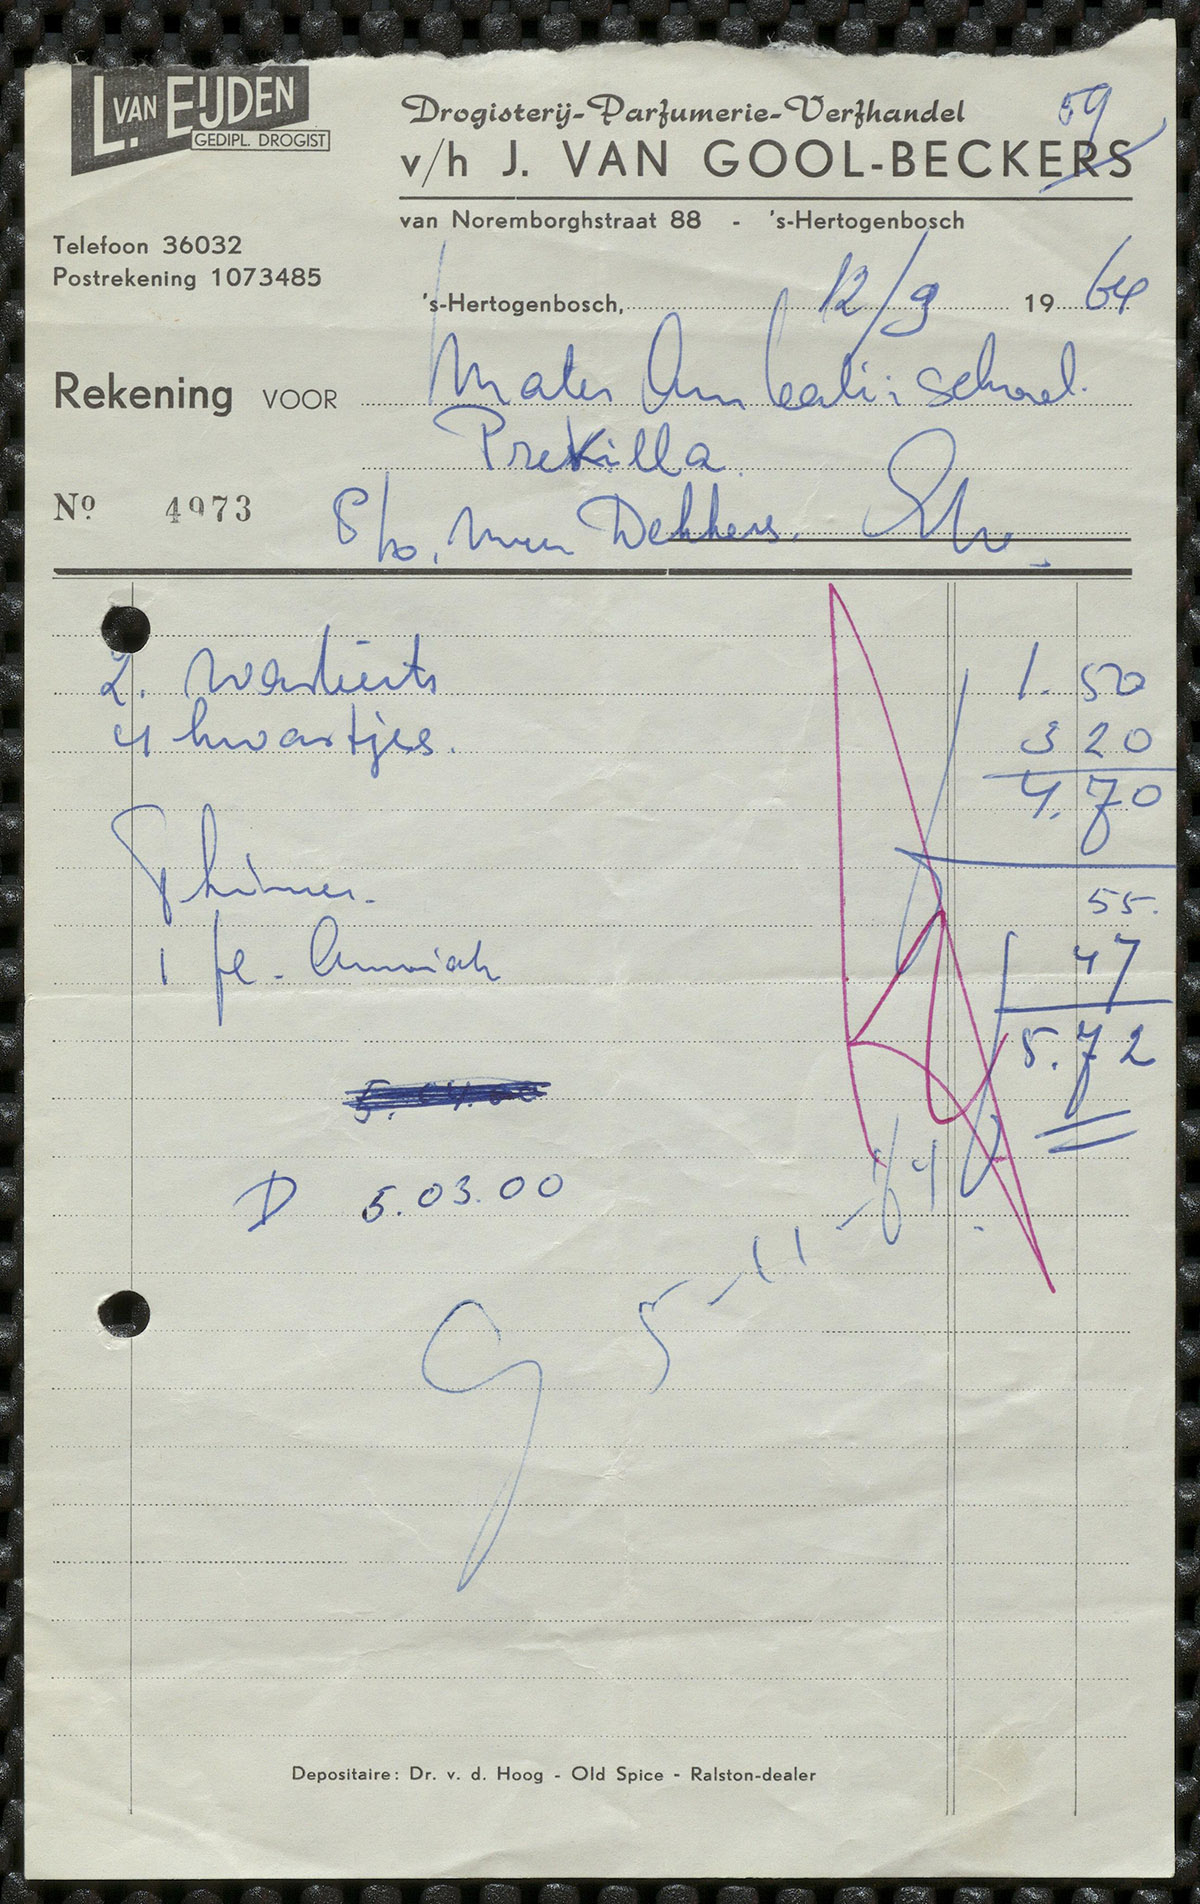 L. VAN EIJDEN
GEDIPL. DROGIST
Drogisterij-Parfumerie-Verfhandel
59
v/h J. VAN GOOL-BECKERS
van Noremborghstraat 88 - 's-Hertogenbosch
Telefoon 36032
Postrekening 1073485
's-Hertogenbosch, 12/9 1964
Rekening VOOR Mater school.
No 4973
Dekkers.
2. 1.50
4 kwartjes. 3 20
4.70
Thinner. 55.
1 fl. Amoniak 47
5.72
D 5.03.00
5-11-64
Depositaire: Dr. v. d. Hoog - Old Spice - Ralston-dealer